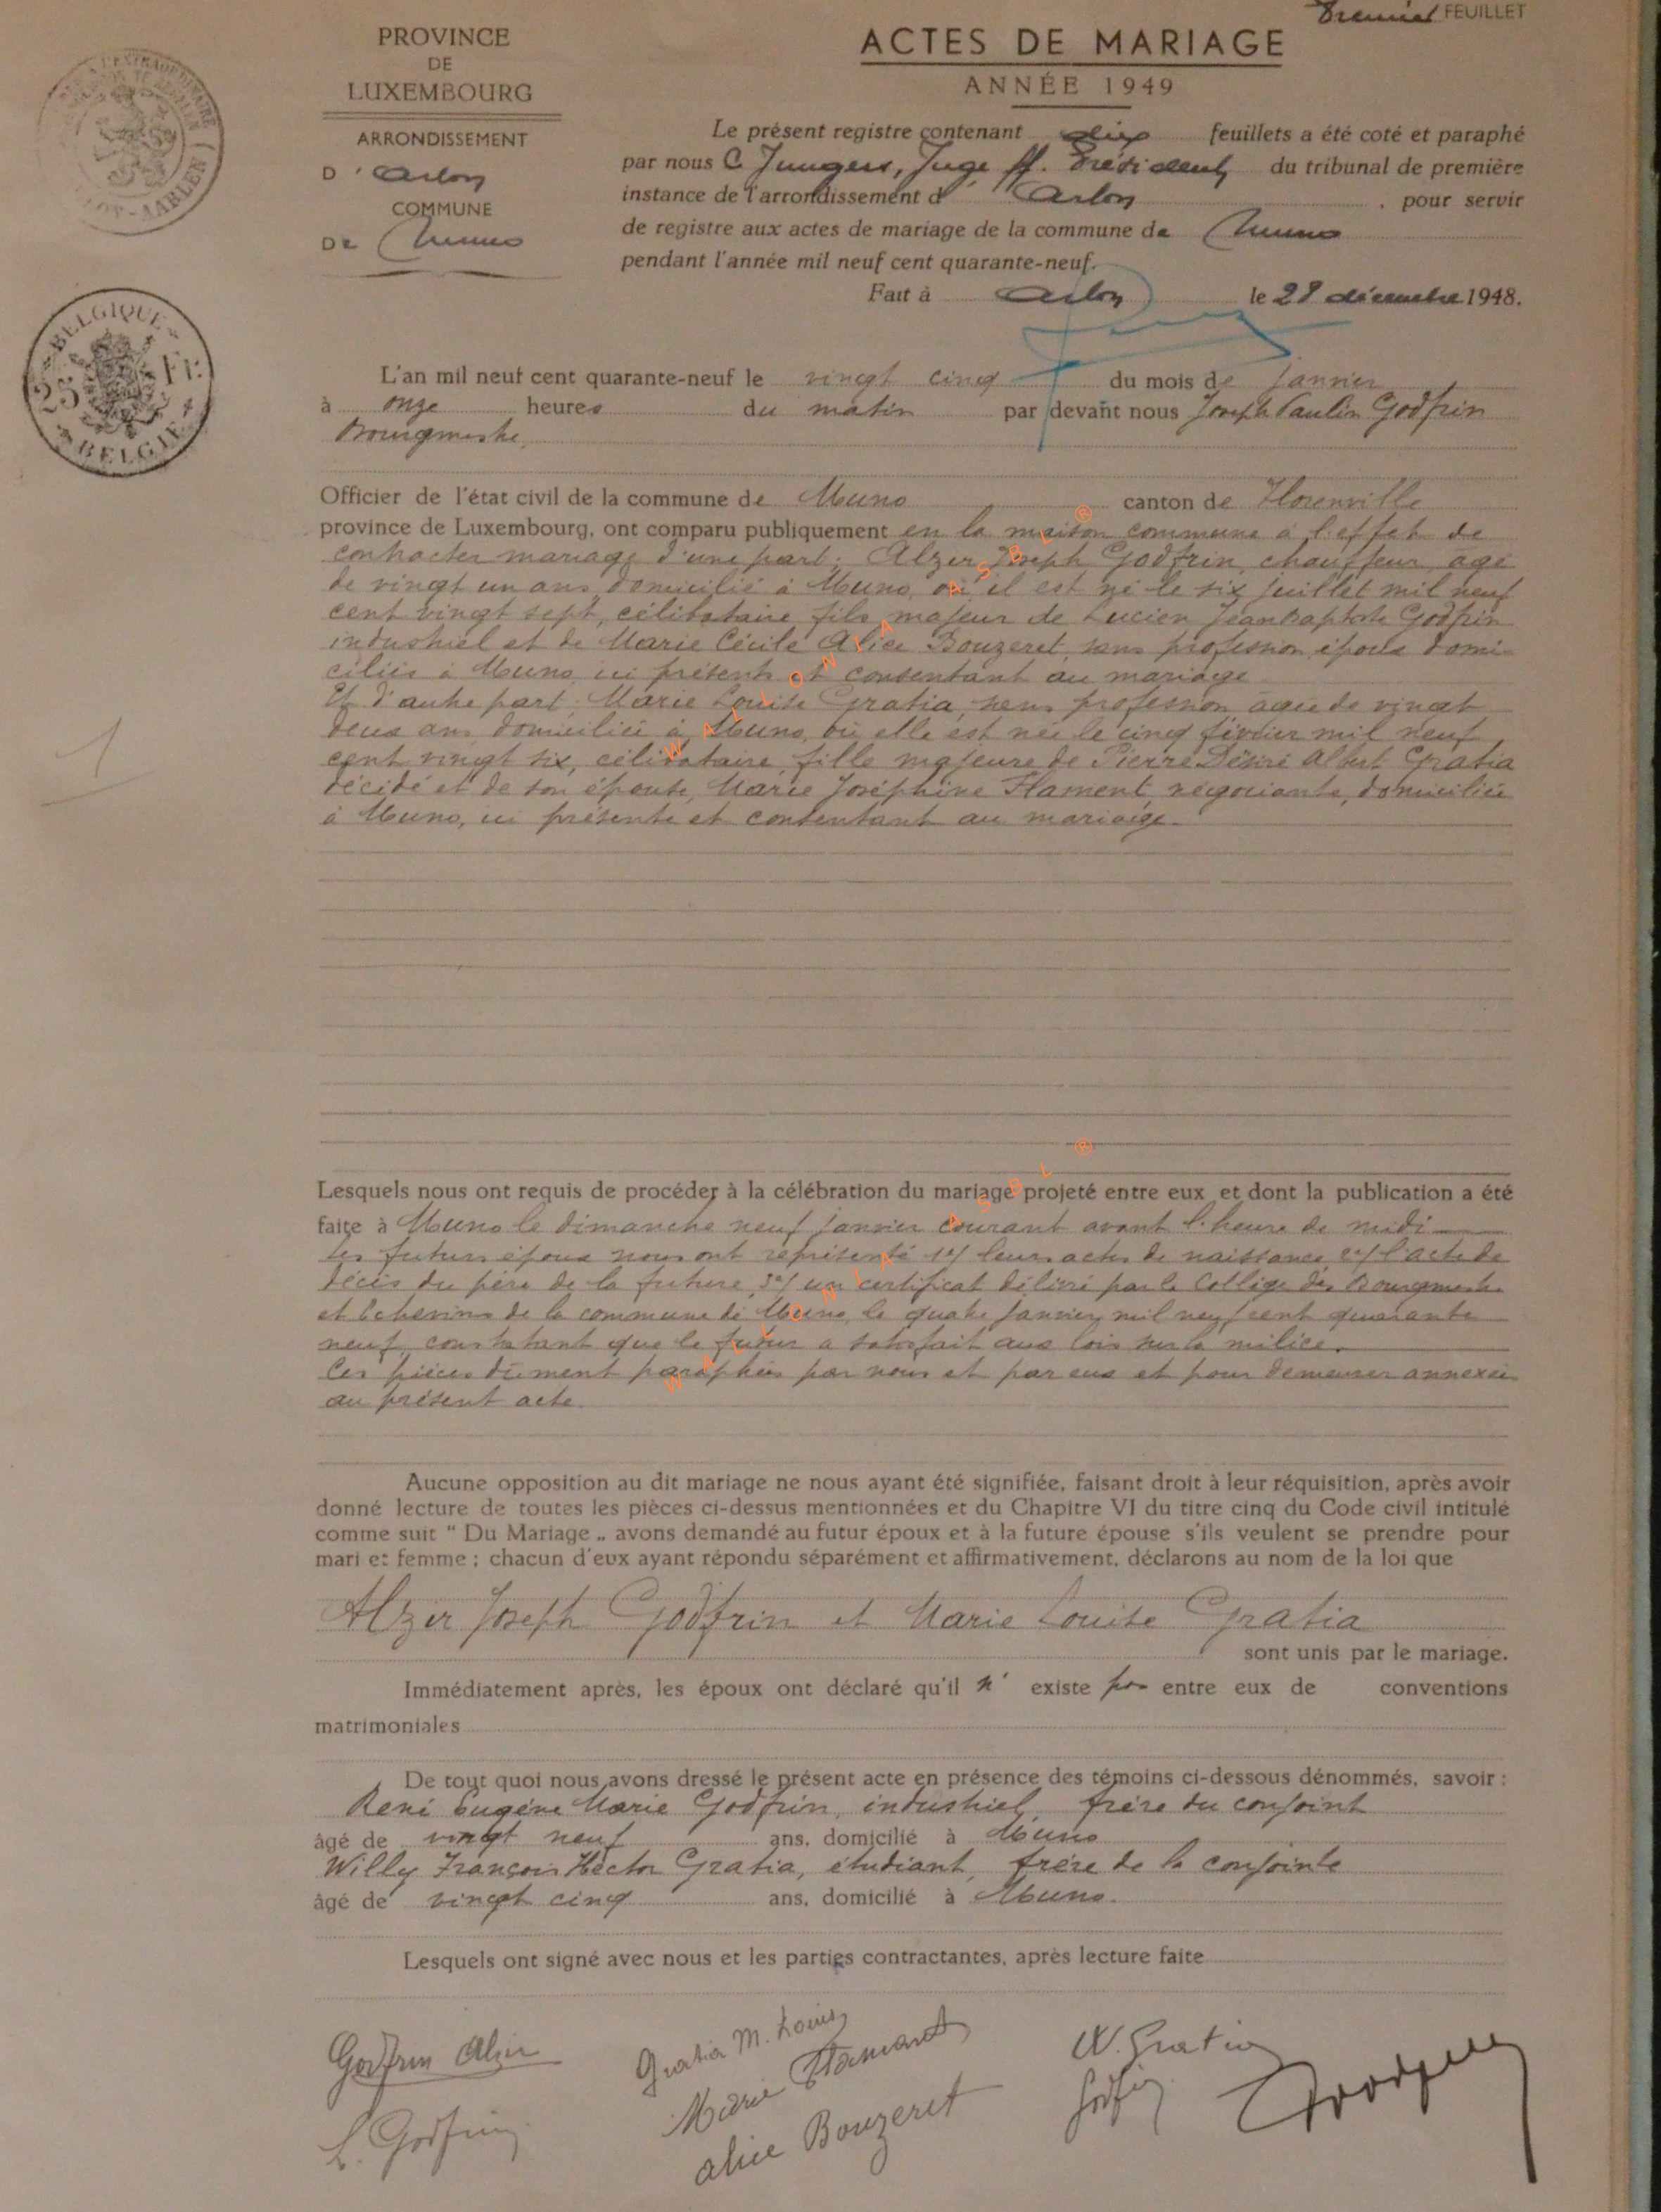 Premier FEUILLET
PROVINCE
DE
LUXEMBOURG
ARRONDISSEMENT
D'Arlon
COMMUNE
De Muno
ACTES DE MARIAGE
ANNÉE 1949
Le présent registre contenant dix feuillets a été coté et paraphé
par nous C Jungers, Juge ff. Président du tribunal de première
instance de l'arrondissement d'Arlon, pour servir
de registre aux actes de mariage de la commune de Muno
pendant l'année mil neuf cent quarante-neuf.
Fait à Arlon le 28 décembre 1948.
BELGIQUE
25 Fr.
BELGIË
L'an mil neuf cent quarante-neuf le vingt cinq du mois de Janvier
à onze heures du matin par devant nous Joseph Paulin Godfrin
Bourgmestre,
Officier de l'état civil de la commune de Muno canton de Florenville
province de Luxembourg, ont comparu publiquement en la maison commune à l'effet de
contracter mariage d'une part: Alzer Joseph Godfrin, chauffeur, agé
de vingt un ans domicilié à Muno, où il est né le six juillet mil neuf
cent vingt sept, célibataire fils majeur de Lucien Jean Baptiste Godfrin
industriel et de Marie Cécile Alice Bouzeret, sans profession époux domi-
ciliés à Muno, ici présents et consentant au mariage
Et d'autre part: Marie Louise Gratia, sans profession agée de vingt
deux ans domiciliée à Muno, où elle est née le cinq février mil neuf
cent vingt six, célibataire, fille majeure de Pierre Désiré Albert Gratia
décédé et de son épouse, Marie Joséphine Flament, négociante, domiciliée
à Muno, ici présente et consentant au mariage.
1
Lesquels nous ont requis de procéder à la célébration du mariage projeté entre eux et dont la publication a été
faite à Muno le dimanche neuf janvier courant avant l'heure de midi
Les futurs époux nous ont représenté 1°/ leurs actes de naissance 2°/ l'acte de
décès du père de la future, 3°/ un certificat délivré par le Collège des Bourgmestre
et Echevins de la commune de Muno, le quatre Janvier mil neuf cent quarante
neuf, constatant que le futur a satisfait aux lois sur la milice.
Ces pièces dument paraphées par nous et par eux et pour demeurer annexées
au présent acte.
Aucune opposition au dit mariage ne nous ayant été signifiée, faisant droit à leur réquisition, après avoir
donné lecture de toutes les pièces ci-dessus mentionnées et du Chapitre VI du titre cinq du Code civil intitulé
comme suit " Du Mariage „ avons demandé au futur époux et à la future épouse s'ils veulent se prendre pour
mari et femme ; chacun d'eux ayant répondu séparément et affirmativement, déclarons au nom de la loi que
Alzer Joseph Godfrin et Marie Louise Gratia
sont unis par le mariage.
Immédiatement après, les époux ont déclaré qu'il n' existe pas entre eux de conventions
matrimoniales
De tout quoi nous avons dressé le présent acte en présence des témoins ci-dessous dénommés, savoir :
René Eugène Marie Godfrin, industriel, frère du conjoint
âgé de vingt neuf ans, domicilié à Muno
Willy François Hector Gratia, étudiant, frère de la conjointe
âgé de vingt cinq ans, domicilié à Muno.
Lesquels ont signé avec nous et les parties contractantes, après lecture faite
Godfrin Alzer
Gratia M. Louise
W. Gratia
Marie Flamant
L. Godfrin
Alice Bouzeret
Godfrin
WALLONIA ASBL ®
WALLONIA ASBL ®